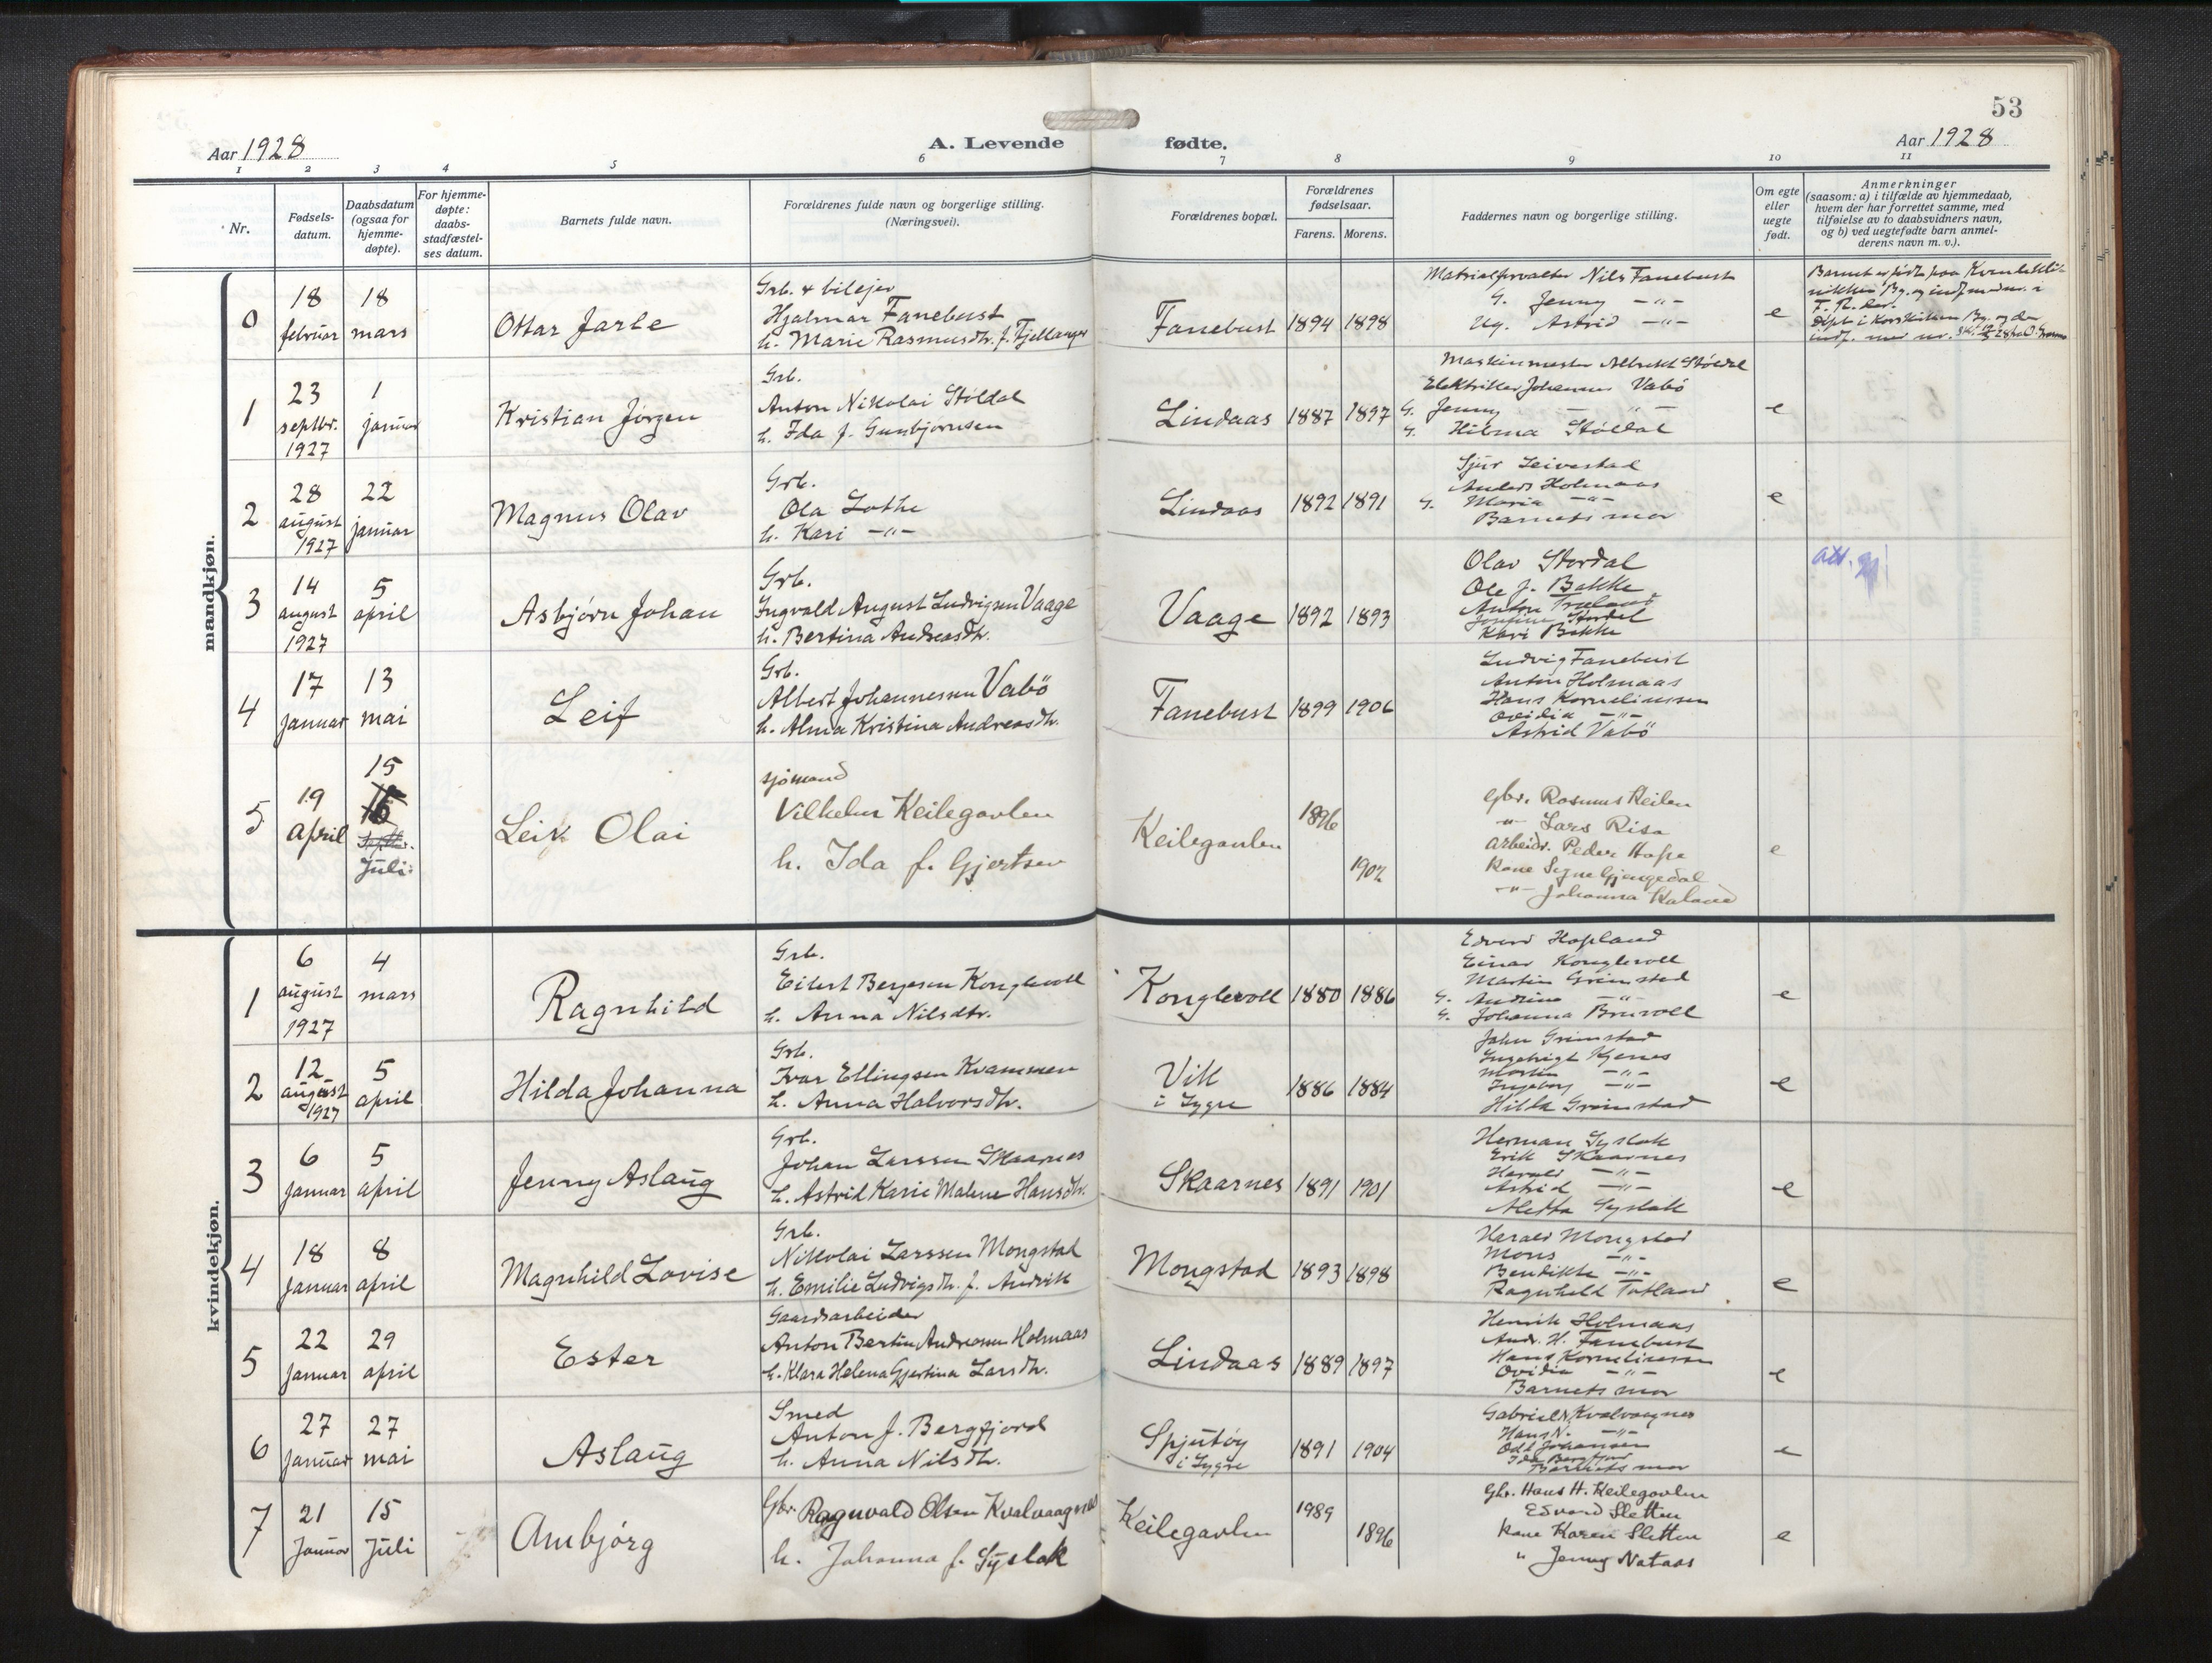 53
Aar 1928
A. Levende fødte.
Aar 1928
1 2 3 4 5 6 7 8 9 10 11
Nr.
Fødsels-
datum.
Daabsdatum
(ogsaa for
hjemme-
døpte).
For hjemme-
døpte:
daabs-
stadfæstel-
ses datum.
Barnets fulde navn.
Forældrenes fulde navn og borgerlige stilling.
(Næringsvei).
Forældrenes bopæl.
Forældrenes
fødselsaar.
Farens. Morens.
Faddernes navn og borgerlige stilling.
Om egte
eller
uegte
født.
Anmerkninger
(saasom: a) i tilfælde av hjemmedaab,
hvem der har forrettet samme, med
tilføielse av to daabsvidners navn,
og b) ved uegtefødte barn anmel-
derens navn m. v.).
mandkjøn.
0
18
februar
18
mars
Ottar Jarle
Grb. & bilejer
Hjalmar Fanebust
h. Marie Rasmusdtr. f. Fjellanger
Fanebust 1894 1898
Nils Fanebust
G. Jenny -"-
Ug. Astrid -"-
e
Barnet er født paa
1
23
septbr.
1927
1
januar
Kristian Jörgen
Grb.
Anton Nikolai Stöldal
h. Ida f. Gunbjørnsen
Lindaas 1887 1897
Maskinmester Albrekt Stöldal
Elektriker Johannes Vabö
G. Jenny -"-
G. Hilma Stöldal
e
2
28
august
1927
22
januar
Magnus Olav
Grb.
Ola Lothe
h. Kari -"-
Lindaas 1892 1891
Sjur Leivestad
Anders Holmaas
G. Maria -"-
Barnets mor
e
3
14
august
1927
5
april
Asbjørn Johan
Grb.
Ingvald August Ludvigsen Vaage
h. Bertina Andreasdtr.
Vaage 1892 1893
Olav Stordal
Ole J. Bakke
Anton
Stordal
Kari Bakke
att.
4
17
januar
13
mai
Leif
Grb.
Albert Johannessen Vabö
h. Alma Kristina Andreasdtr.
Fanebust 1899 1906
Ludvig Fanebust
Anton Holmaas
Hans Korneliussen
Ovidia -"-
Astrid Vabö
5
19
april
15
Juli
Leik Olai
sjömand
Vilhelm Keilegavlen
h. Ida f. Gjertsen
Keilegavlen 1896 1902
Gbr. Rasmus Keilen
-"- Lars Risa
Arbeidr. Peder Hope
Kone Signe Gjengedal
-"- Johanna Kaland
e
kvindekjøn.
1
6
august
1927
4
mars
Ragnhild
Grb.
Eilert Bergesen Konglevoll
h. Anna Nilsdtr.
Konglevoll 1880 1886
Edvard Hopland
Einar Konglevoll
Martin Grimstad
G. Andrine -"-
G. Johanna Bruvoll
e
2
12
august
1927
5
april
Hilda Johanna
Grb.
Ivar Ellingsen Kvammen
h. Anna Halvorsdtr.
Vik
i Lygre
1886 1884
John Grimstad
Ingebrigt Kjenes
Martin -"-
Ingeborg -"-
Hilda Grimstad
e
3
6
januar
5
april
Jenny Aslaug
Grb.
Johan Larssen Skaarnes
h. Astrid Karie Malene Hansdtr.
Skaarnes 1891 1901
Herman Syslak
Erik Skaarnes
Harald -"-
Astrid -"-
Aletta Syslak
e
4
18
januar
8
april
Magnhild Lovise
Grb.
Nikolai Larssen Mongstad
h. Emilie Ludvigsdtr. f. Andvik
Mongstad 1893 1898
Harald Mongstad
Mons -"-
Bendikte -"-
Ragnhild Totland
e
5
22
januar
29
april
Ester
Gaardsarbeider
Anton Bertin Andreassen Holmaas
h. Klara Helena Gjertina Larsdtr.
Lindaas 1889 1897
Henrik Holmaas
Andr. H. Fanebust
Hans Korneliussen
Ovidia -"-
Barnets mor
e
6
27
januar
27
mai
Aslaug
Smed
Anton J. Bergfjord
h. Anna Nilsdtr.
Spjutöy
i Lygre
1891 1904
Gabriel Kvalvaagnes
Hans N. -"-
Odd Johansen
Ida Bergfjord
Barnets mor
e
7
21
Januar
15
Juli
Ambjørg
Gbr. Ragnvald Olsen Kvalvaagnes
h. Johanna f. Syslak
Keilegavlen 1989 1896
Gbr. Hans H. Keilegavlen
Edvard Sletten
Kone Karen Sletten
" Jenny Nataas
e